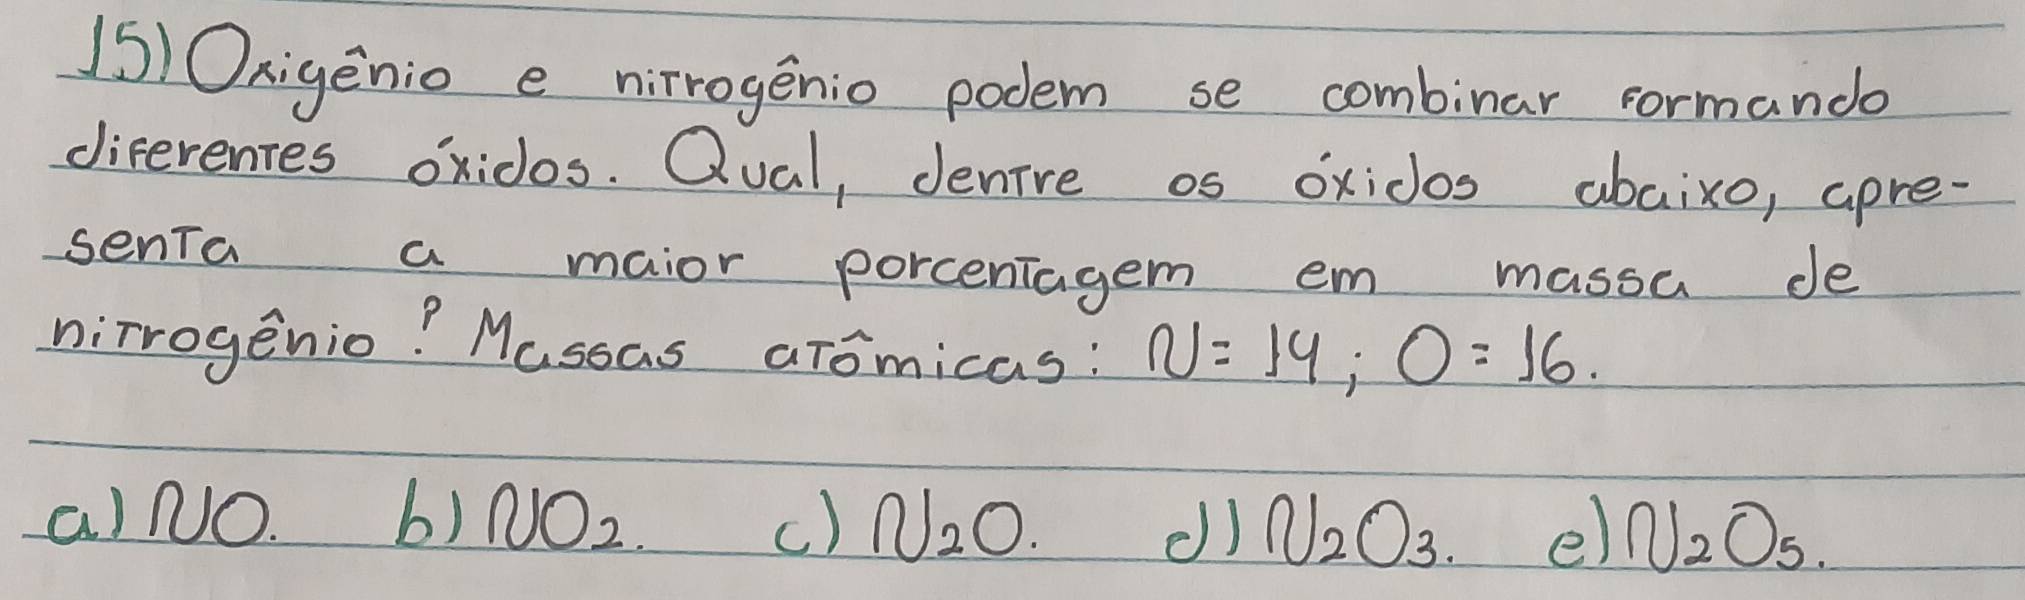 15) Oxigênio e nitrogênio podem se combinar formando
diferentes óxidos. Qual, dentre os óxidos abaixo, apre-
senta a maior porcentagem em massa de
nitrogênio? Massas atômicas: N = 14; O = 16.
a) NO. b) NO₂. c) N₂O. d) N₂O₃. e) N₂O₅.